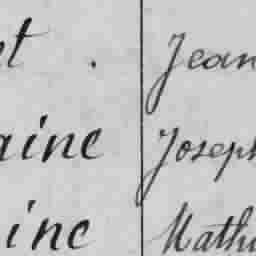 et . Jean
aine Joseph
ine Mathu